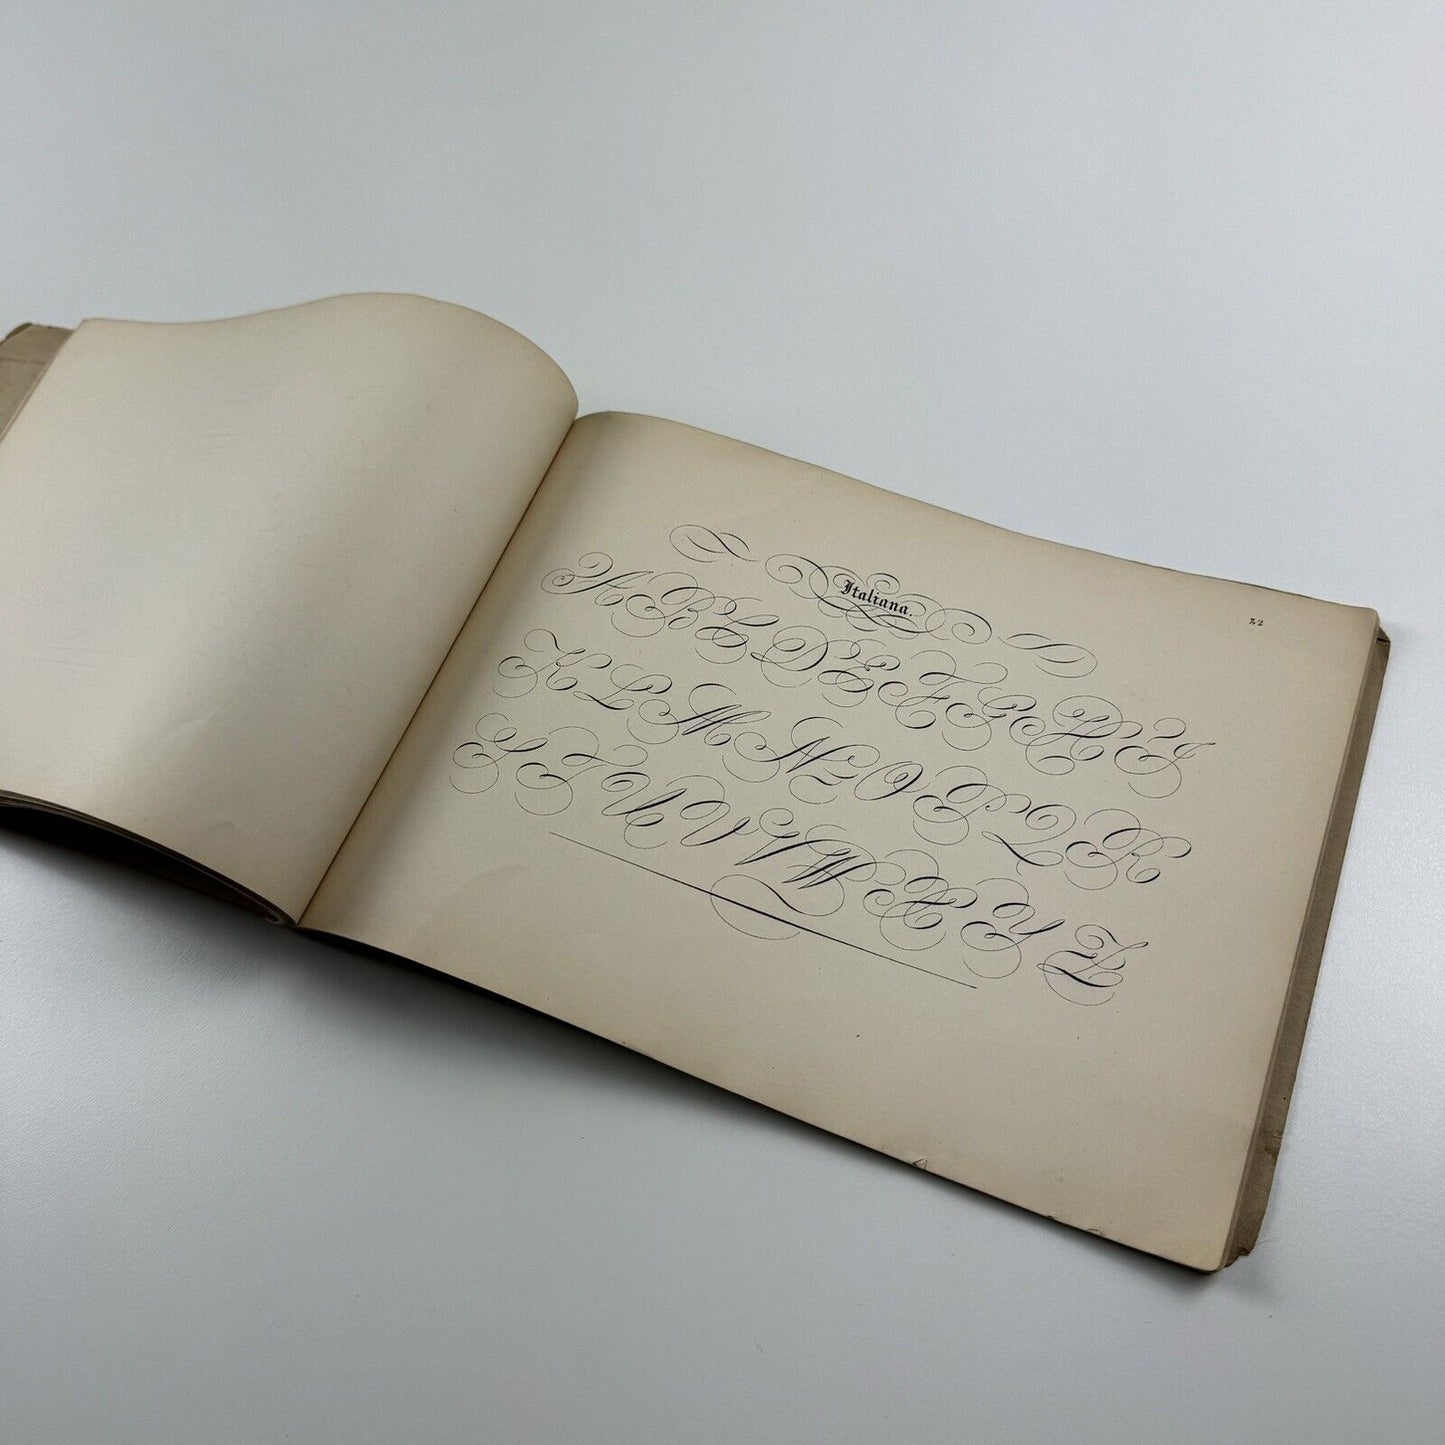 Italiana.
A B C D E F G H J
K L M N O P Q R
S T U V V W X Y Z